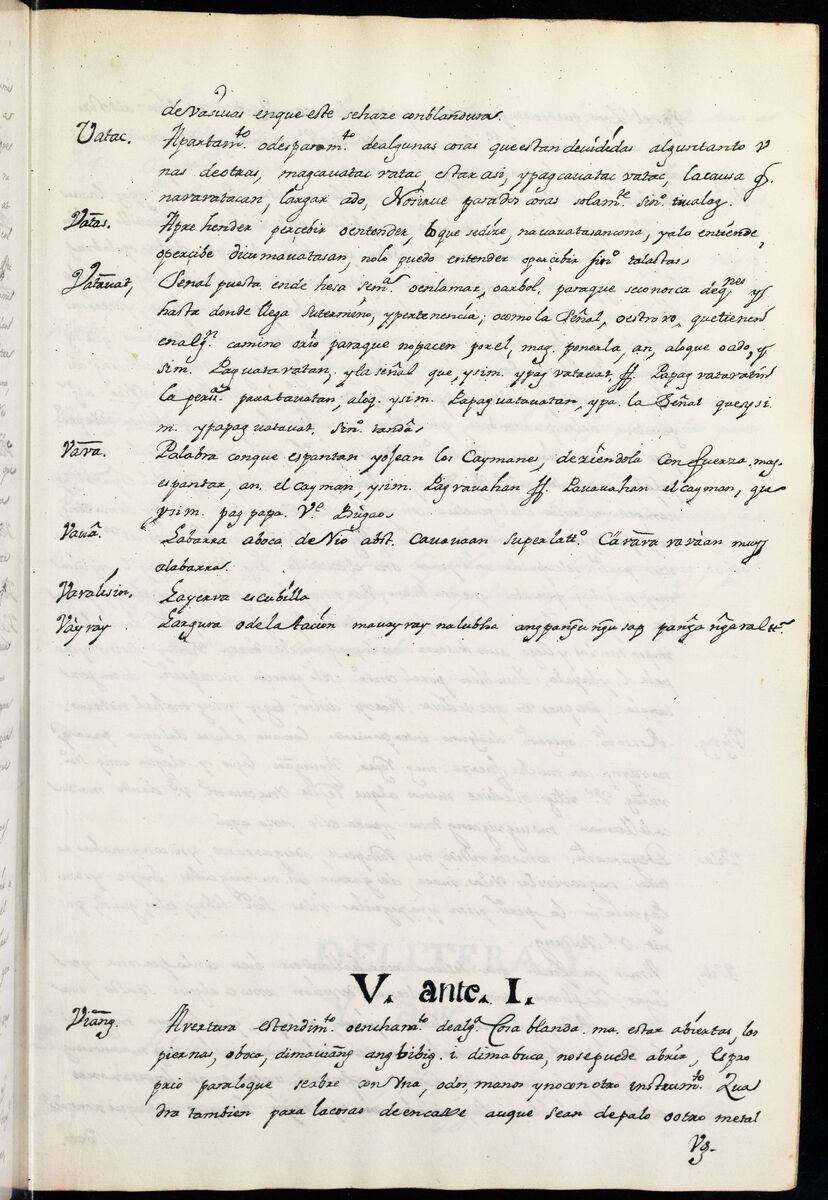 de vasuras en que este se haze con blandura.
Vatac. Apartam.to o desparam.to de algunas cosas que estan devididas algun tanto v
nas de otras, magcavatac vatac estar asi, ypagcavatac vatac, la causa q.
navavatacan, largar ado, No sirve para dos cosas solam.te sin.o tivalag.
Vatas. Aprehender percebir o entender, lo que se dize, navavatasan cona, ya lo entiende,
o percibe di cu mavatasan, no lo puedo entender o percebir sin.o talastas
Vatavat, Señal puesta en dehesa sem.a o en la mar, o arbol, para que se conosca de q.nes y
hasta donde llega su termino, y pertenencia; o como la Señal, o estrovo, que tienen
en alg.n camino o rio para que no pacen por el, mag. ponerla, an, a lo que o ado, y
sim. Pag vatavatan, y la señal que, y sim. ypag vatavat. ff. Papag vatavatin
la pers.a paratavatan, a loq. y sim. Papag vatavatan, ypa. la Señal que y si
m. ypapag vatavat. Sin.o tanda
Vava. Palabra con que espantan y ojean los Caymanes, deziendola con fuerza. mag.
espantar, an. el cayman, y sim. Pag vavahan ff. Pavavahan el cayman, que
y sim. pag papa. V.e Bugao
Vava. La barra a boca de Rio abst. Cavavaan superlatt.o Ca vava vavaan muy
a la barra.
Valis in. La yerva escubilla
Vay vay Largura o delatacion mavayvay na lubha ang pangungusap
V. ante. I.
Viang. Avertura estendim.to o encham.to de alg.a Cosa blanda. ma. estar abiertas, las
piernas, o boca, di maviang ang bibig. i. di mabuca, no se puede abrir, Es pro
prio para lo que se abre con vna, o dos, manos y no con otro instrum.to Qua
dra tambien para la cosas de encaxe auque sean de palo o otro metal